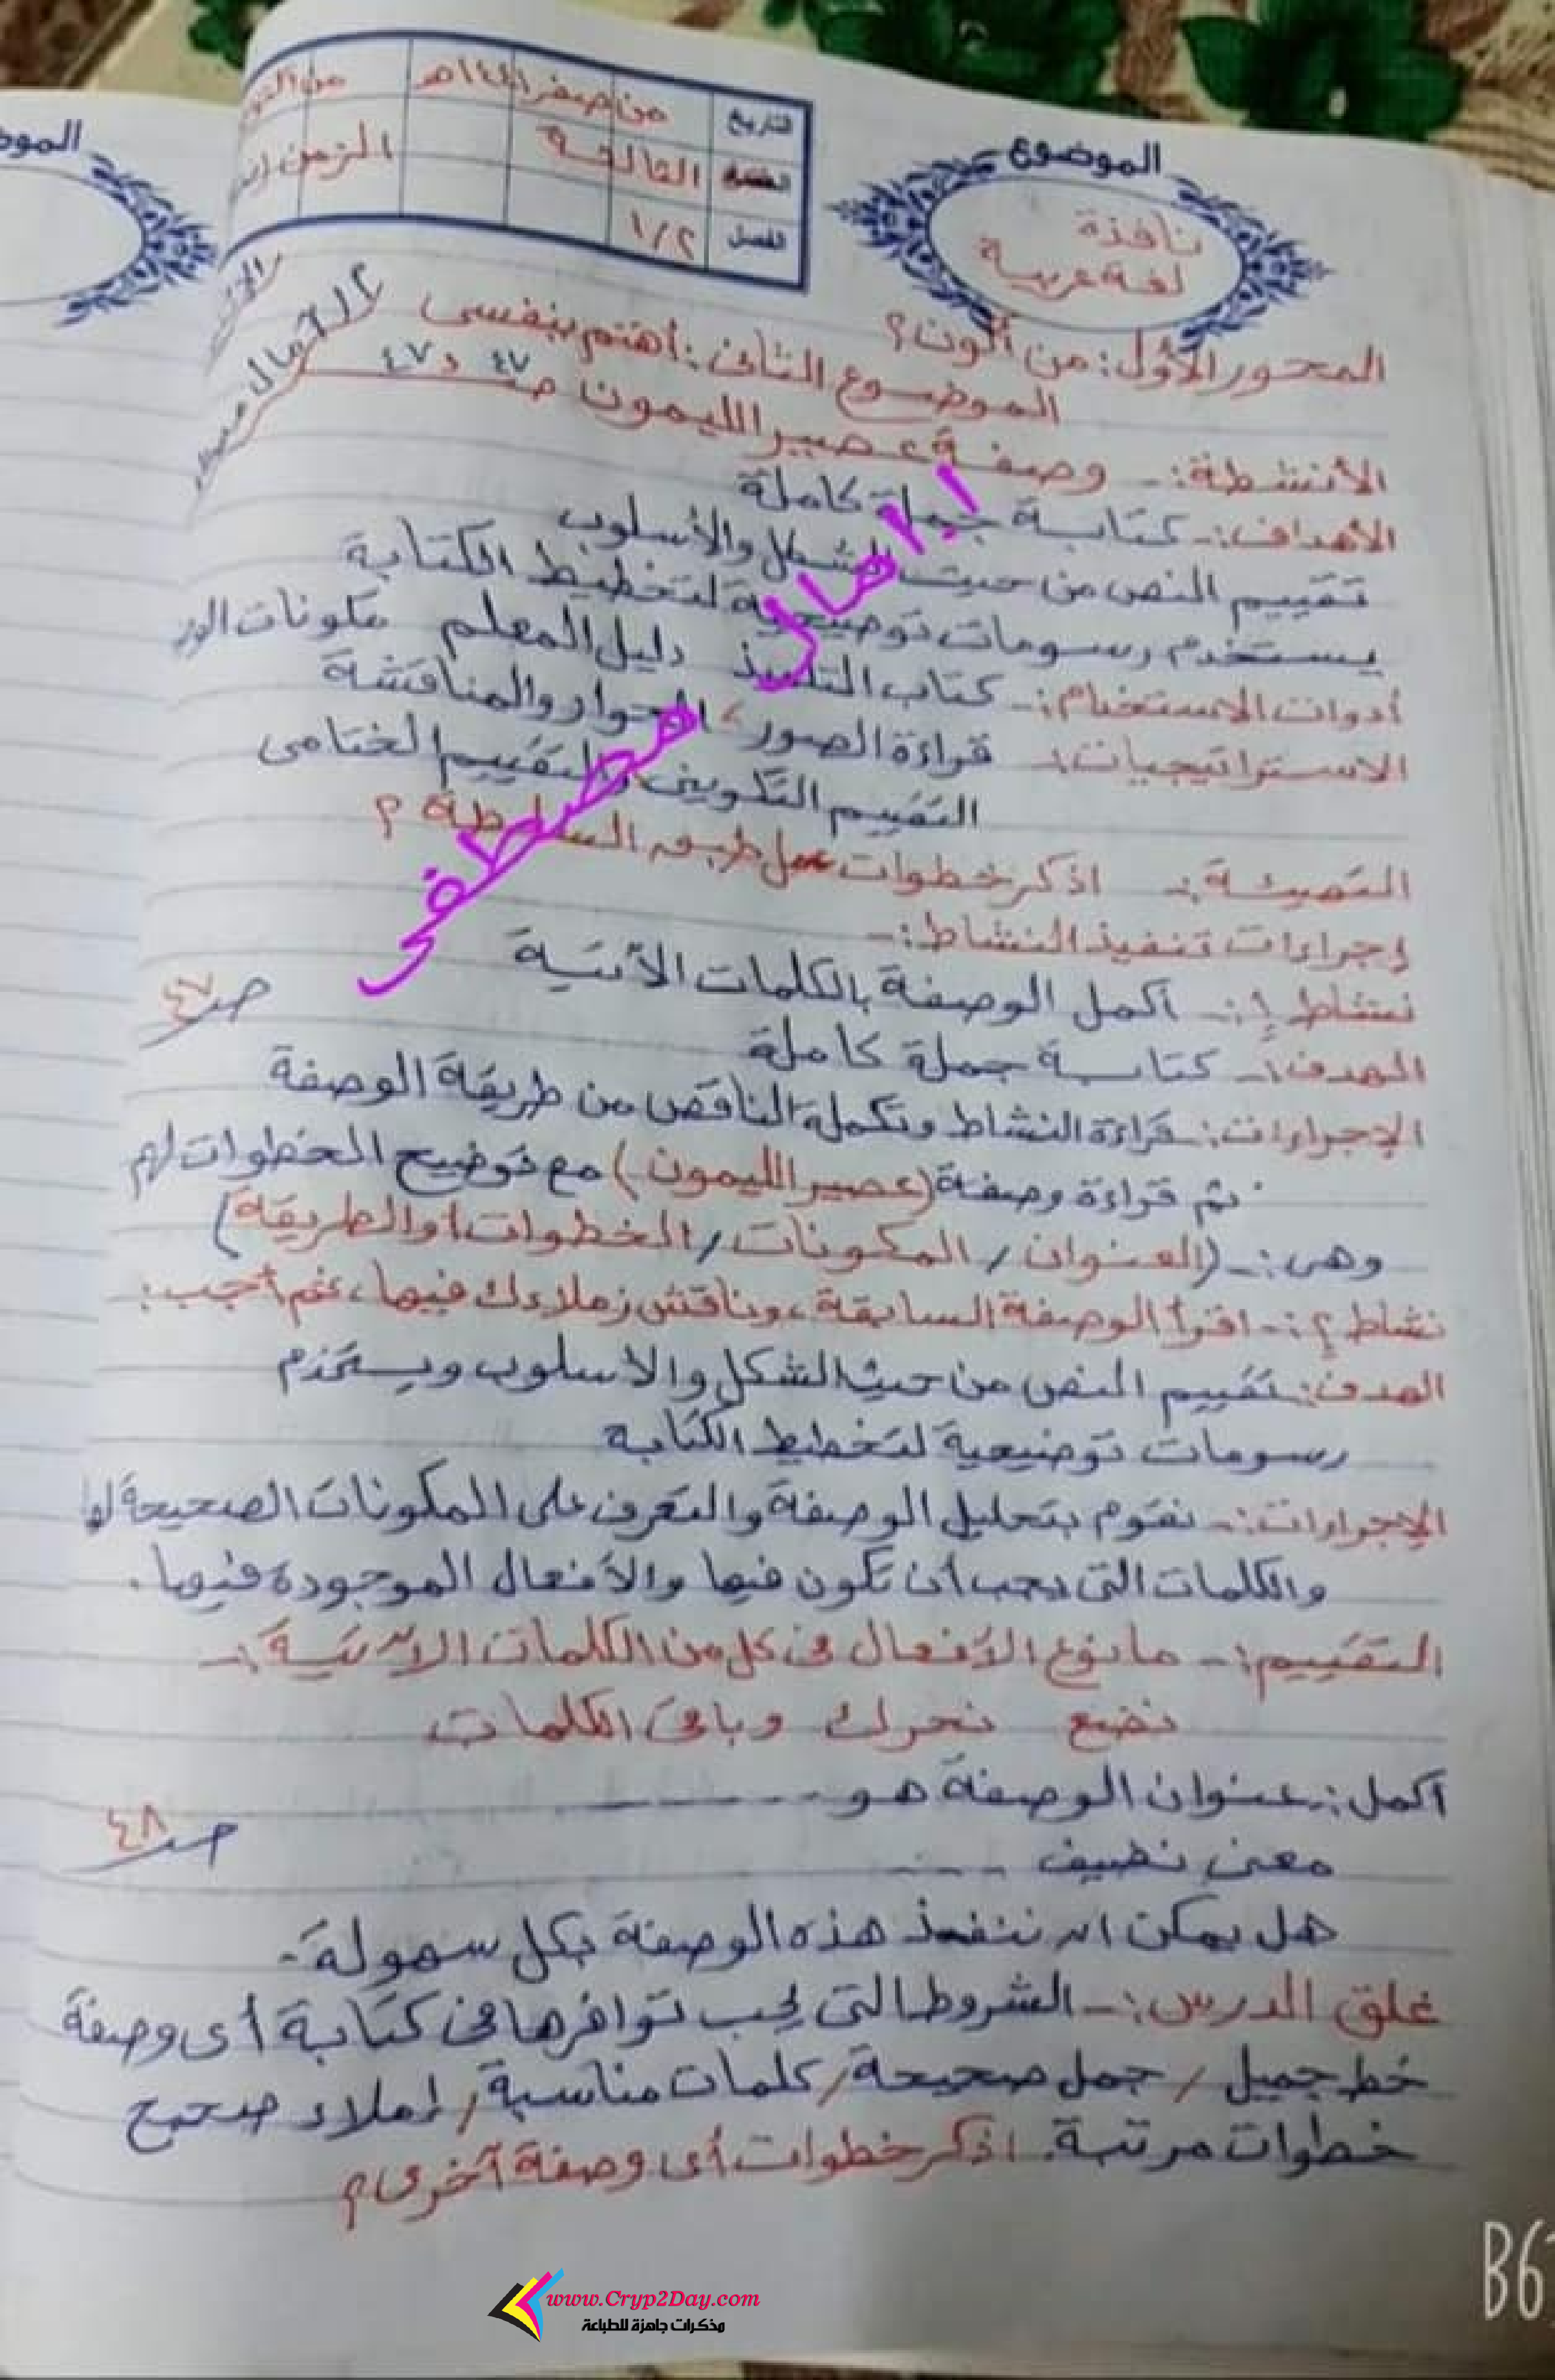 الموضوع
نافذة
لغة عربية
التاريخ من صفر ١٤٤١هـ
الفترة الثالثة الزمن
الفصل ١/٢
المحور الأول: من أكون؟
الموضوع الثانى: أهتم بنفسى
الأنشطة:- وصفة عصير الليمون صـ ٤٧
الأهداف:- كتابة جملة كاملة
تقييم النص من حيث الشكل والأسلوب
يستخدم رسومات توضيحية لتخطيط الكتابة
أدوات الاستخدام:- كتاب التلميذ دليل المعلم مكونات
الاستراتيجيات:- قراءة الصور، الحوار والمناقشة
التقييم التكوينى والتقييم الختامى
التهيئة:- اذكر خطوات عمل طبق السلطة ؟
إجراءات تنفيذ النشاط:-
نشاط ١:- أكمل الوصفة بالكلمات الآتية صـ ٤٧
الهدف:- كتابة جملة كاملة
الإجراءات:- قراءة النشاط وتكملة الناقص من طريقة الوصفة
ثم قراءة وصفة (عصير الليمون) مع توضيح الخطوات لهم
وهى:- (العنوان / المكونات / الخطوات أو الطريقة)
نشاط ٢:- اقرأ الوصفة السابقة، وناقش زملاءك فيها، ثم أجب:
الهدف: تقييم النص من حيث الشكل والاسلوب ويستخدم
رسومات توضيحية لتخطيط الكتابة
الإجراءات:- نقوم بتحليل الوصفة والتعرف على المكونات الصحيحة لها
والكلمات التى يجب أن تكون فيها والأفعال الموجودة فيها.
التقييم:- ما نوع الأفعال فى كل من الكلمات الآتية:-
نضع نحرك وباقى الكلمات
أكمل:- عنوان الوصفة هو ------
معنى نضيف ---- صـ ٤٨
هل يمكن ان ننفذ هذه الوصفة بكل سهولة.
غلق الدرس:- الشروط التى يجب توافرها فى كتابة أى وصفة
خط جميل / جمل صحيحة / كلمات مناسبة / إملاء صحيح
خطوات مرتبة. اذكر خطوات أى وصفة أخرى؟
ابتهال مصطفى
www.Cryp2Day.com
مذكرات جاهزة للطباعة